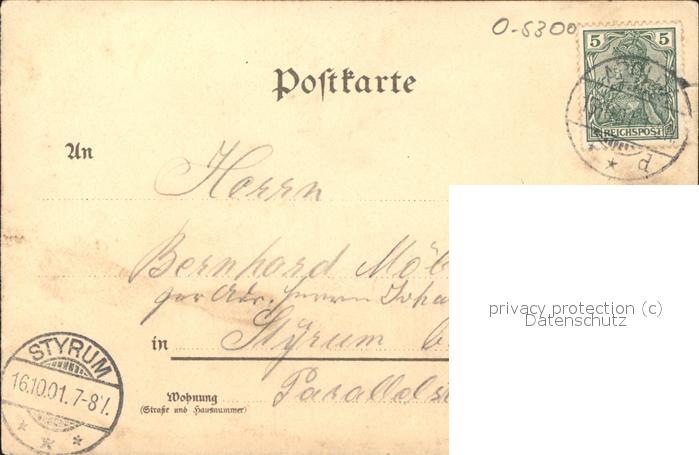 O-5300
5 5
REICHSPOST
d
Postkarte
An
Herrn
Bernhard Möb
per Adr. Herrn Joha
in Styrum b.
Wohnung
(Straße und Hausnummer)
Parallelst
STYRUM
16.10.01. 7-8V.
privacy protection (c)
Datenschutz